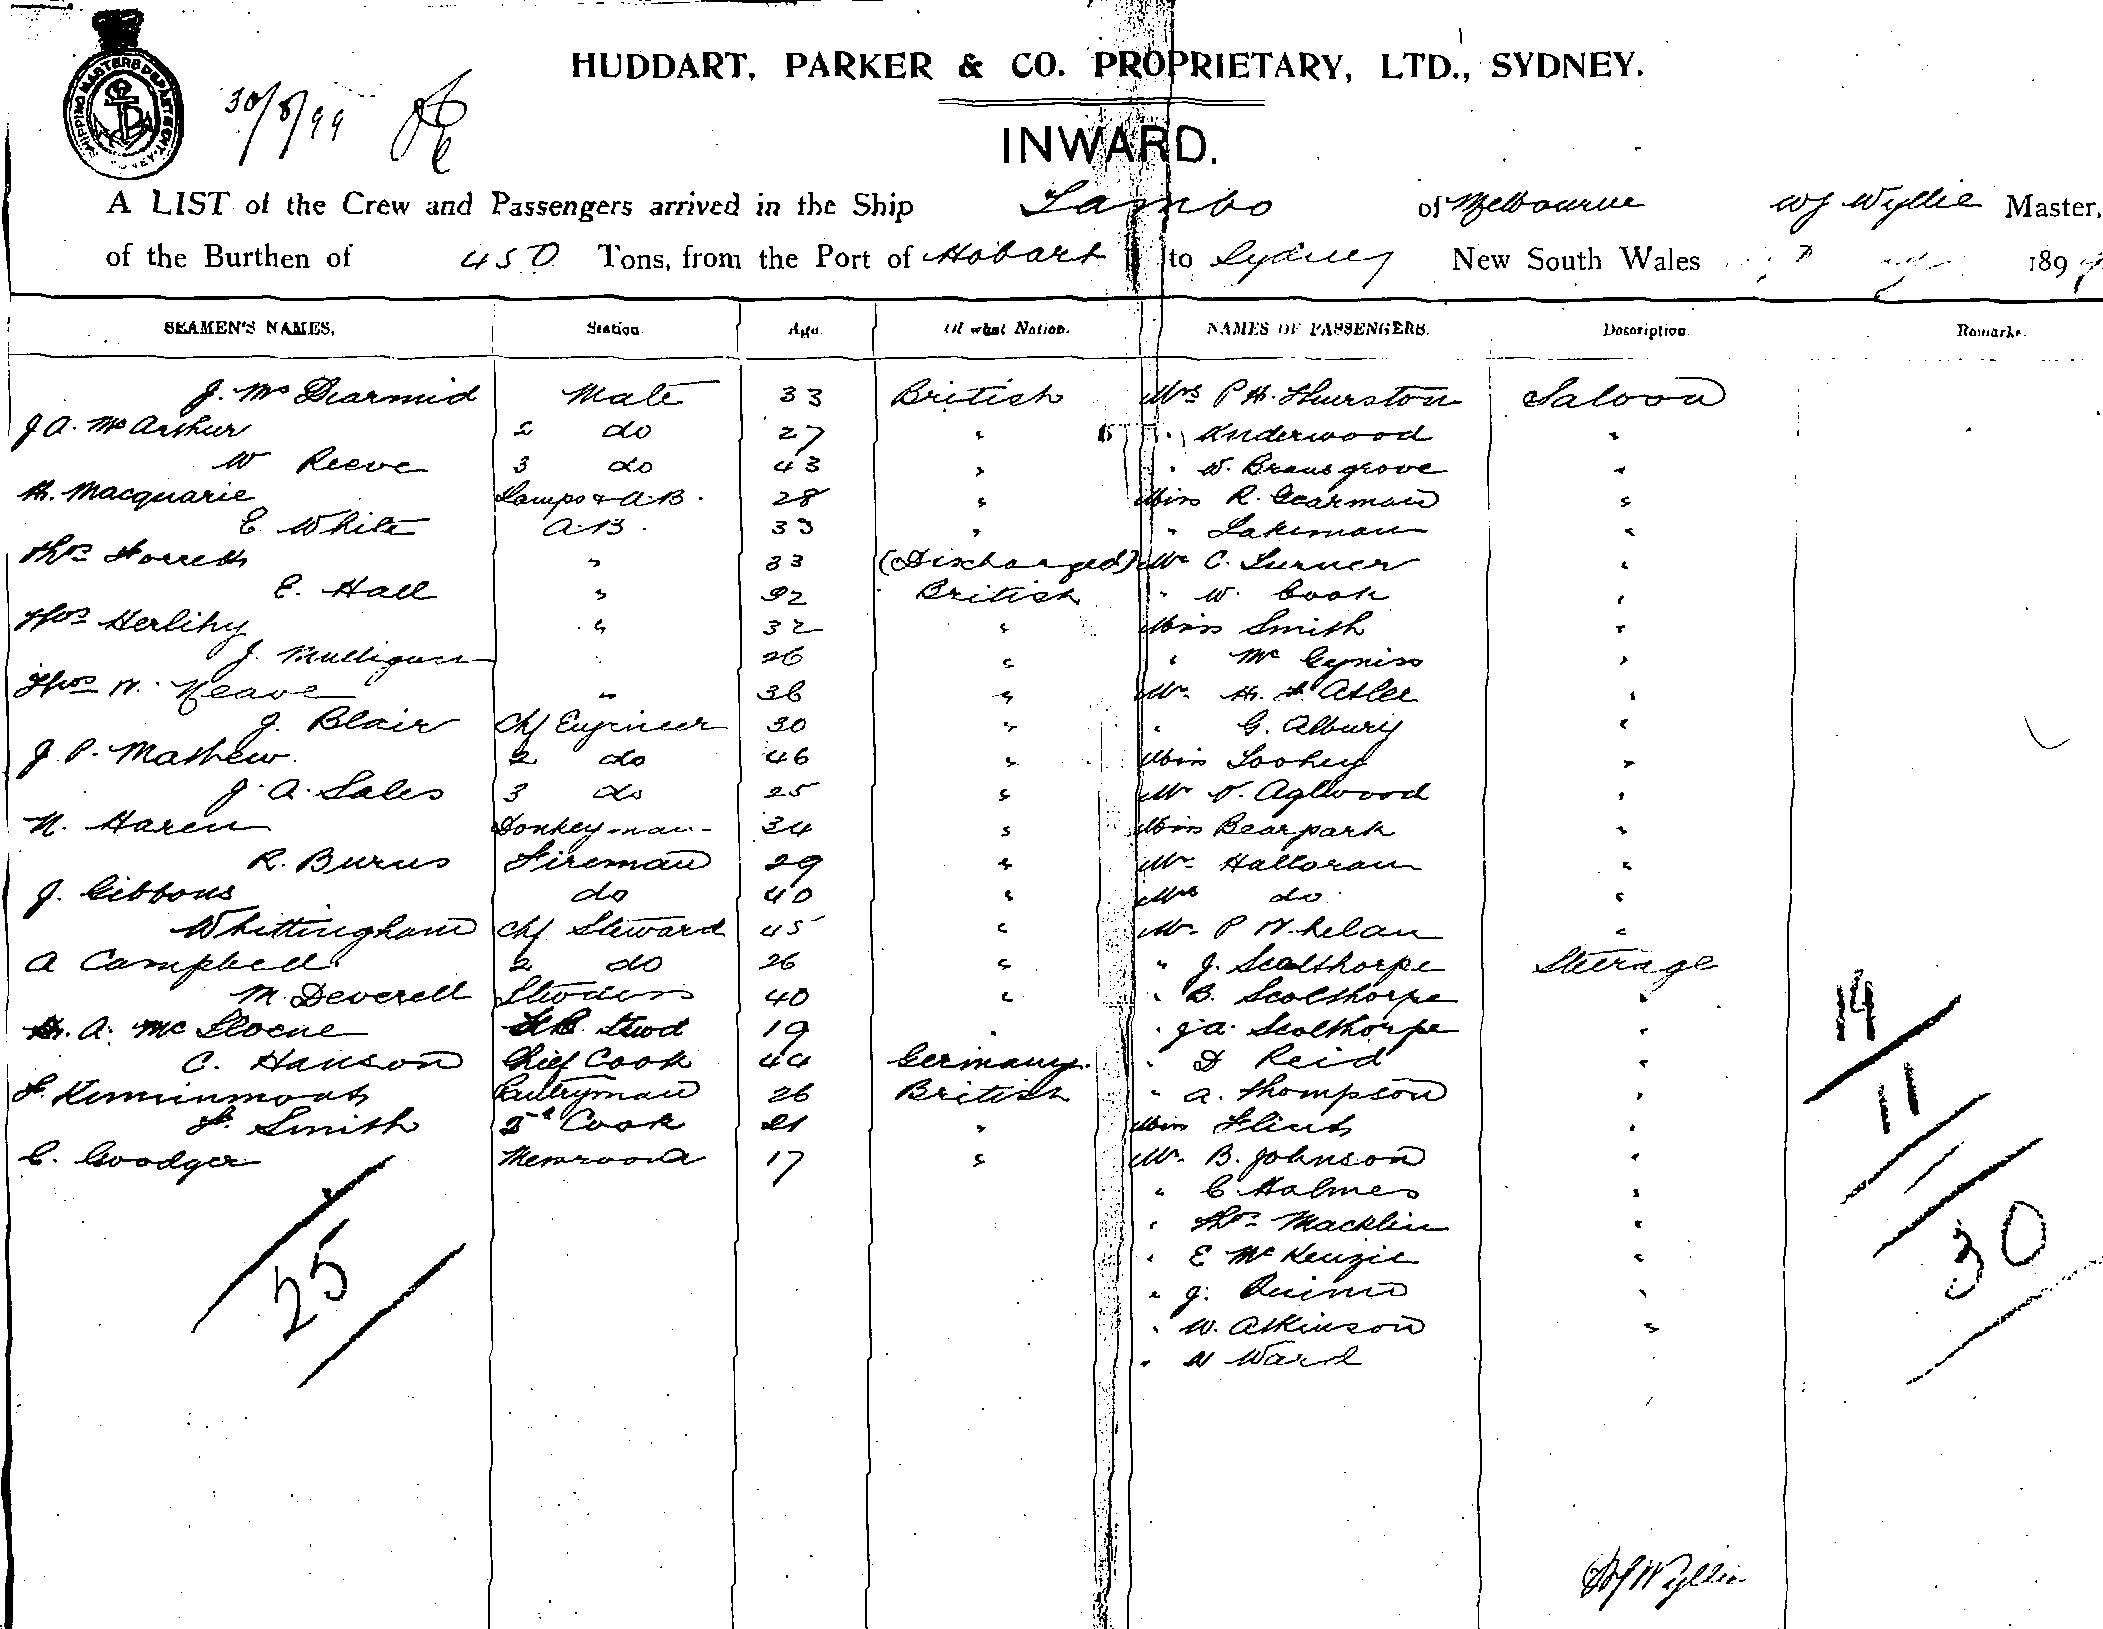 SHIPPING MASTERS DEPARTMENT
30/8/99
HUDDART, PARKER & CO. PROPRIETARY, LTD., SYDNEY.
INWARD.
A LIST of the Crew and Passengers arrived in the Ship Tambo of Melbourne WJ Wyllie Master,
of the Burthen of 450 Tons, from the Port of Hobart to Sydney New South Wales 1899
SEAMEN'S NAMES. Station. Age. Of what Nation. NAMES OF PASSENGERS. Description. Remarks.
J. Mc Diarmid Mate 33 British Mrs P H. Thurston Saloon
J A. McArthur 2 do 27 " " Underwood "
W Reeve 3 do 43 " " W. Bransgrove "
H. Macquarie Lamps & A.B. 28 " Miss R. Gearman "
E White A.B. 33 " " Lakeman "
Thos " 33 (Discharged) Mr C. Turner "
E. Hall " 32 British " W. Cook "
Thos Herlihy " 32 " Miss Smith "
J. Mulligan " 26 " " Mc "
Thos N. Neave " 36 " Mr. H. F. Atlee "
J. Blair Chf Engineer 30 " " G. Albury "
J. P. Mathew 2 do 46 " Miss Toohey "
J. A. Sales 3 do 25 " Mr Aglwood "
N. Haren Donkeyman 34 " Miss Bearpark "
R. Burns Fireman 29 " Mr. Halloran "
J. Gibbons do 40 " Mrs do "
Whittingham Chf Steward 45 " Mr. P Whelan "
A Campbell 2 do 26 " " J. Scolthorpe Steerage
M. Deverell Stwdess 40 " " B. Scolthorpe "
A. Mc Stwd 19 " " J A. Scolthorpe "
C. Hanson Chief Cook 44 Germany. " D Reid "
F. Kinninmont Pantryman 26 British " A. Thompson "
F. Smith 2d Cook 21 " Miss Flint "
C. Goodger Messroom 17 " Mr. B. Johnson "
" C. Holmes "
" Thos Macklin "
" E Mc Kenzie "
" J. Quinn "
" W. Atkinson "
" N Ward
25
19
11
30
WJ Wyllie